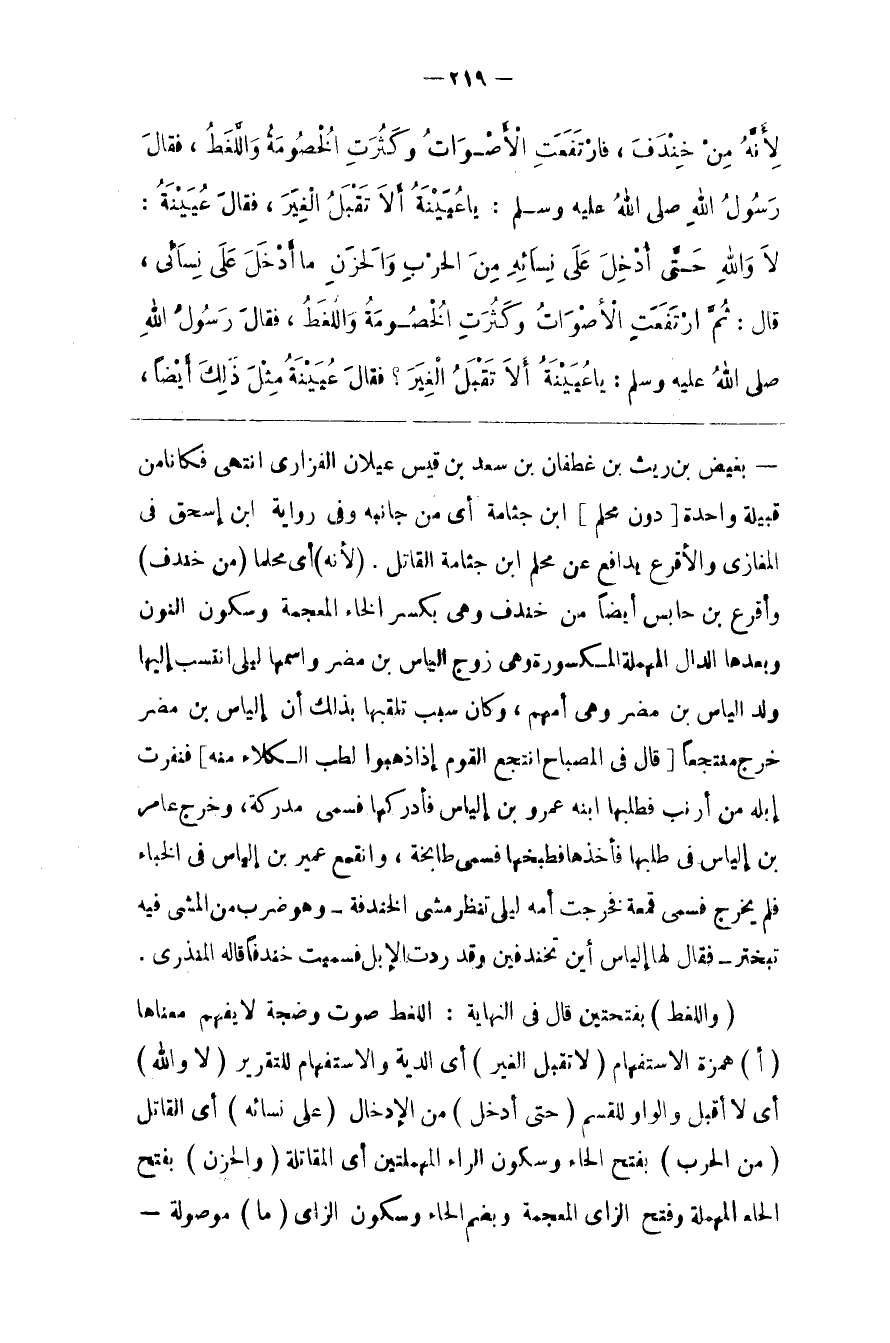 — ٢١٩ —
لِأَنَّهُ مِنْ خِنْدَفَ ، فارْتَفَعَتِ الْأَصْوَاتُ وكَثُرَتِ الُخْصُومَةُ وَاللَّغَطُ ، فقالَ
رَسُولُ اللهِ صلى اللهُ عليه وسلم : ياعُيَيْنَةُ أَلاَ تَقْبَلُ الْغِيَرَ ، فقالَ عُيَيْنَةُ :
لاَ وَاللهِ حَتَّى أُدْخِلَ عَلَى نِسَائِهِ مِنَ الحرْبِ وَالَحْزَنِ ما أَدْخَلَ عَلَى نِسَائَى ،
قال : ثُمَّ ارْتَفَعَتِ الْأَصْوَاتُ وكَثُرَتِ الُخْصُومَةُ وَاللَّغَطُ ، فقالَ رَسُولُ اللهِ
صلى اللهُ عليه وسلم : ياعُيَيْنَةُ أَلاَ تَقْبَلُ الْغِيَرَ ؟ فقالَ عُيَيْنَةُ مِثْلَ ذَلِكَ أَيْضاً ،
— بغيض بن ريث بن غطفان بن سعد بن قيس عيلان الفزارى انتهى فكانا من
قبيلة واحدة [ دون محلم ] ابن جثامة أى من جانبه وفى رواية ابن إسحق فى
المغازى والأقرع يدافع عن محلم ابن جثامة القاتل . (لأنه) أى محلما (من خندف)
وأقرع بن حابس أيضاً من خندف وهى بكسر الخاء المعجمة وسكون النون
وبعدها الدال المهملة المكسورة وهى زوج الياس بن مضر واسمها ليلى انتسب إليها
ولد الياس بن مضر وهى أمهم ، وكان سبب تلقبها بذالك أن إلياس بن مضر
خرج منتجعاً [ قال فى المصباح انتجع القوم إذا ذهبوا لطب الكلاء منه ] فنفرت
إبله من أرنب فطلبها ابنه عمرو بن إلياس فأدركها فسمى مدركة ، وخرج عامر
بن إلياس فى طلبها فأخذها فطبخها فسمى طابخة ، وانقمع عمير بن إلياس فى الخباء
فلم يخرج فسمى قمعة فخرجت أمه ليلى تنظر مشى الخندفة – وهو ضرب من المشى فيه
تبختر – فقال لها إلياس أين تخندفين وقد ردت الإبل فسميت خندفاً قاله المنذرى .
( واللغط ) بفتحتين قال فى النهاية : اللغط صوت وضجة لا يفهم معناها
( أ ) همزة الاستفهام ( لا تقبل الغير ) أى الدية والاستفهام للتقرير ( لا والله )
أى لا أقبل والواو للقسم ( حتى أدخل ) من الإدخال ( على نسائه ) أى القاتل
( من الحرب ) بفتح الحاء وسكون الراء المهملتين أى المقاتلة ( والحزن ) بفتح
الحاء المهملة وفتح الزاى المعجمة وبضم الحاء وسكون الزاى ( ما ) موصولة —